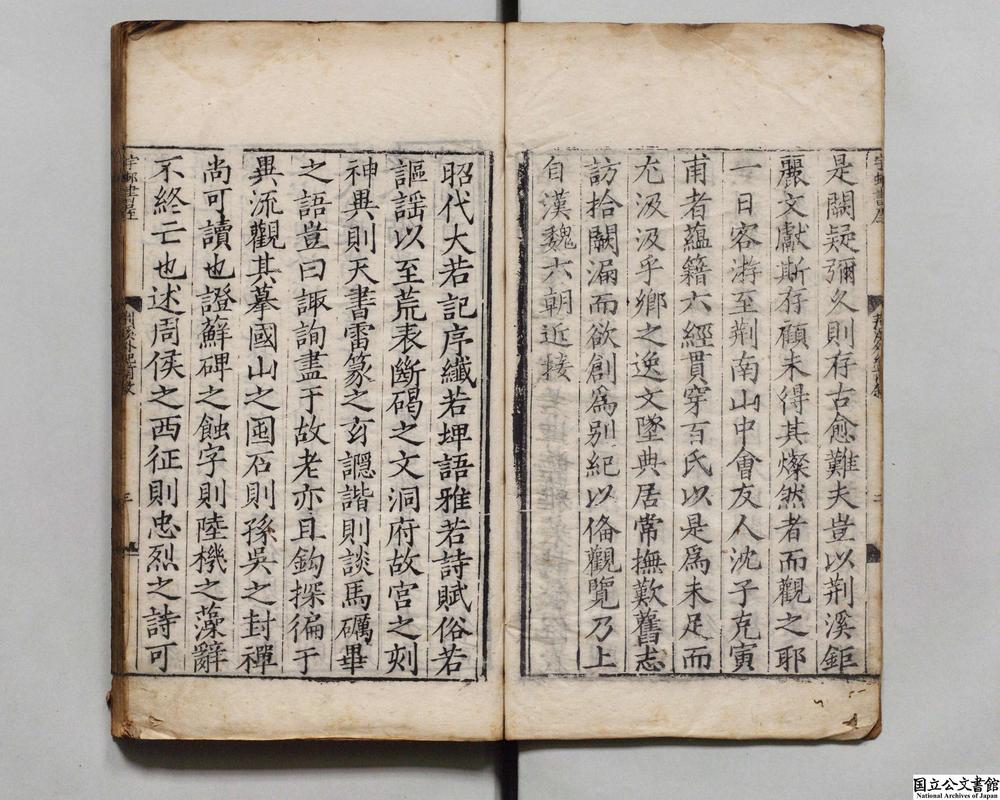 是闕疑彌久則存古愈難夫豈以荆溪鉅
麗文獻斯存顧未得其燦然者而觀之耶
一日客游至荆南山中會友人沈子克寅
甫者蘊籍六經貫穿百氏以是爲未足而
尤汲汲乎鄉之逸文墜典居常撫歎舊志
訪拾闕漏而欲創爲别紀以俻觀覽乃上
自漢魏六朝近接
昭代大若記序纖若埤語雅若詩賦俗若
謳謡以至荒表斷碣之文洞府故宫之刻
神異則天書雷篆之玄讔諧則談馬礪畢
之語豈曰諏詢盡于故老亦且鈎探徧于
異流觀其摹國山之囤石則孫吳之封禪
尚可讀也證鮮碑之蝕字則陸機之藻辭
不終亡也述周侯之西征則忠烈之詩可
二
三
国立公文書館
National Archives of Japan